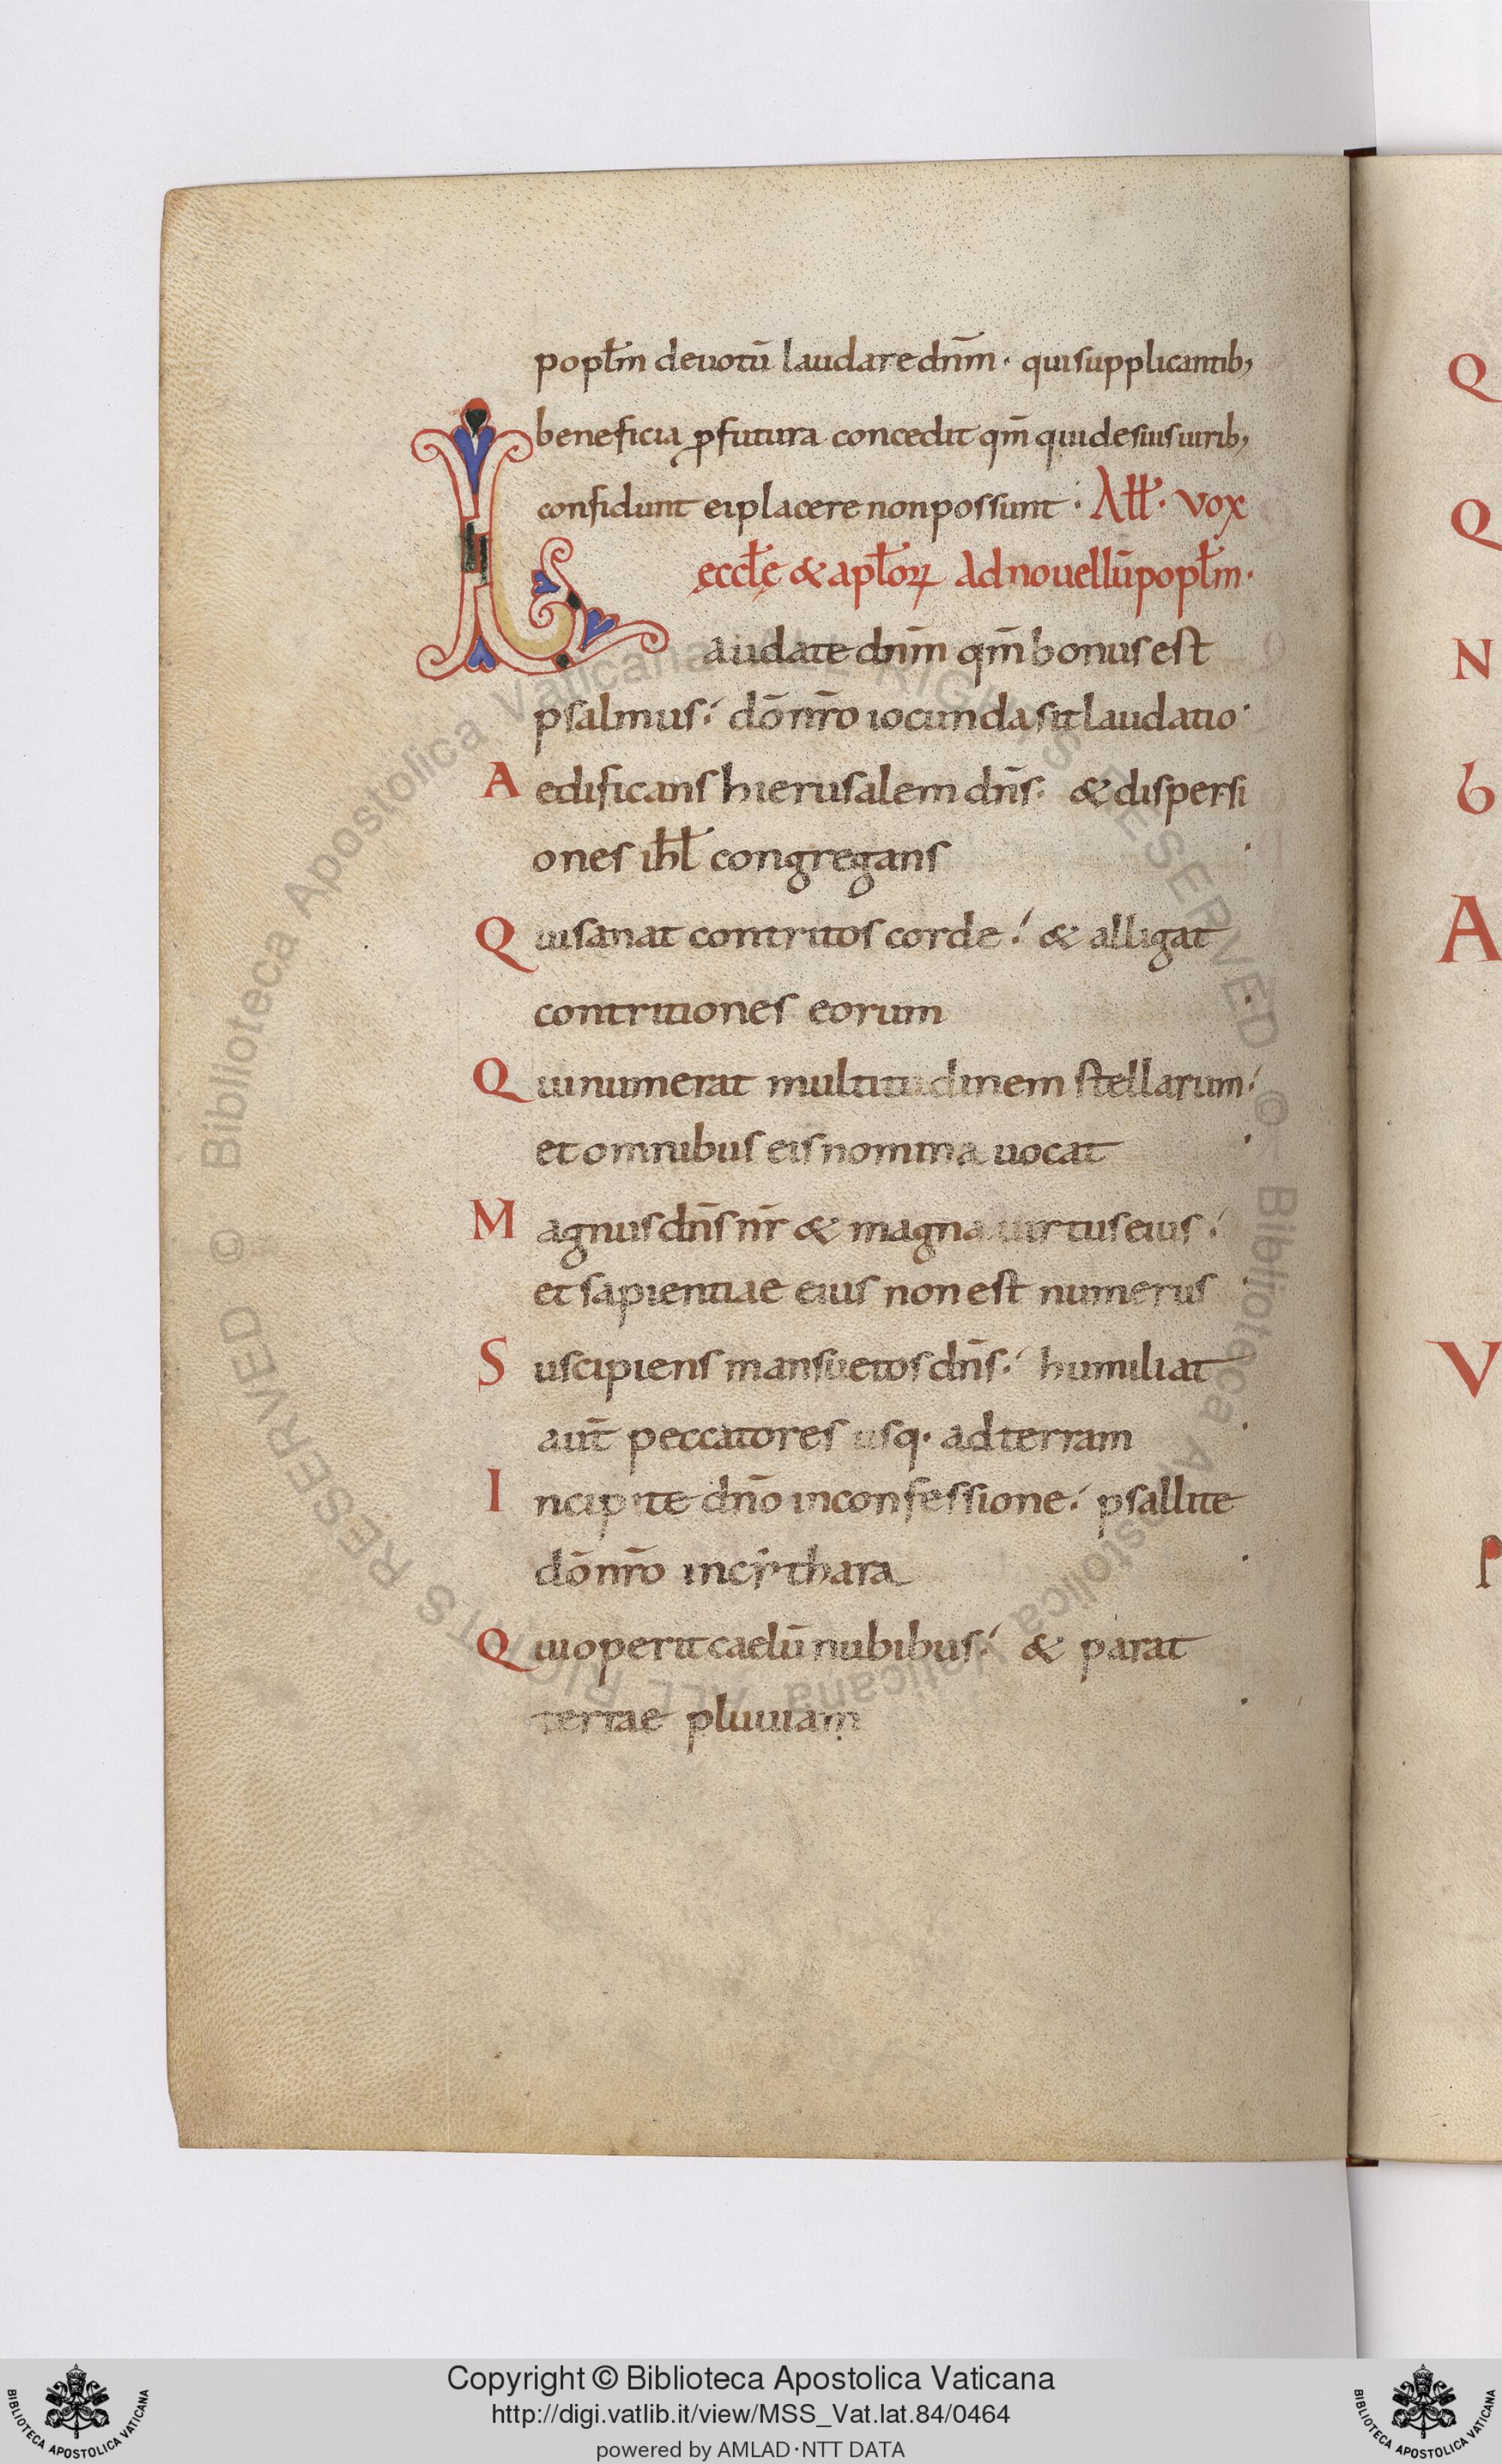 popl̄m deuotū laudare dn̄m · qui supplicantib;
beneficia ꝓfutura concedit qm̄ qui de suis uirib;
confidunt ei placere non possunt · All̄· vox
ęccl̄ę & apl̄oꝝ Ad nouellū popl̄m·
Laudate dn̄m qm̄ bonus est
psalmus·́ dō nr̄o iocunda sit laudatio·
Aedificans hierusalem dn̄s· & dispersi
ones ih̄l congregans ·
Qui sanat contritos corde·́ & alligat
contritiones eorum ·
Qui numerat multitudinem stellarum·́
et omnibus eis nomina uocat ·
Magnus dn̄s nr̄ & magna uirtus eius·́
et sapientiae eius non est numerus ·
Suscipiens mansuetos dn̄s·́ humiliat
aūt peccatores usq· ad terram ·
Incipite dn̄o in confessione·́ psallite
dō nr̄o in cythara ·
Qui operit caelū nubibus·́ & parat
terrae pluuiam ·
Q
Q
N
b
A
V
© Biblioteca Apostolica Vaticana ALL RIGHTS RESERVED © Biblioteca Apostolica Vaticana ALL RIGHTS RESERVED
Copyright © Biblioteca Apostolica Vaticana
http://digi.vatlib.it/view/MSS_Vat.lat.84/0464
powered by AMLAD·NTT DATA
BIBLIOTECA APOSTOLICA VATICANA
BIBLIOTECA APOSTOLICA VATICANA